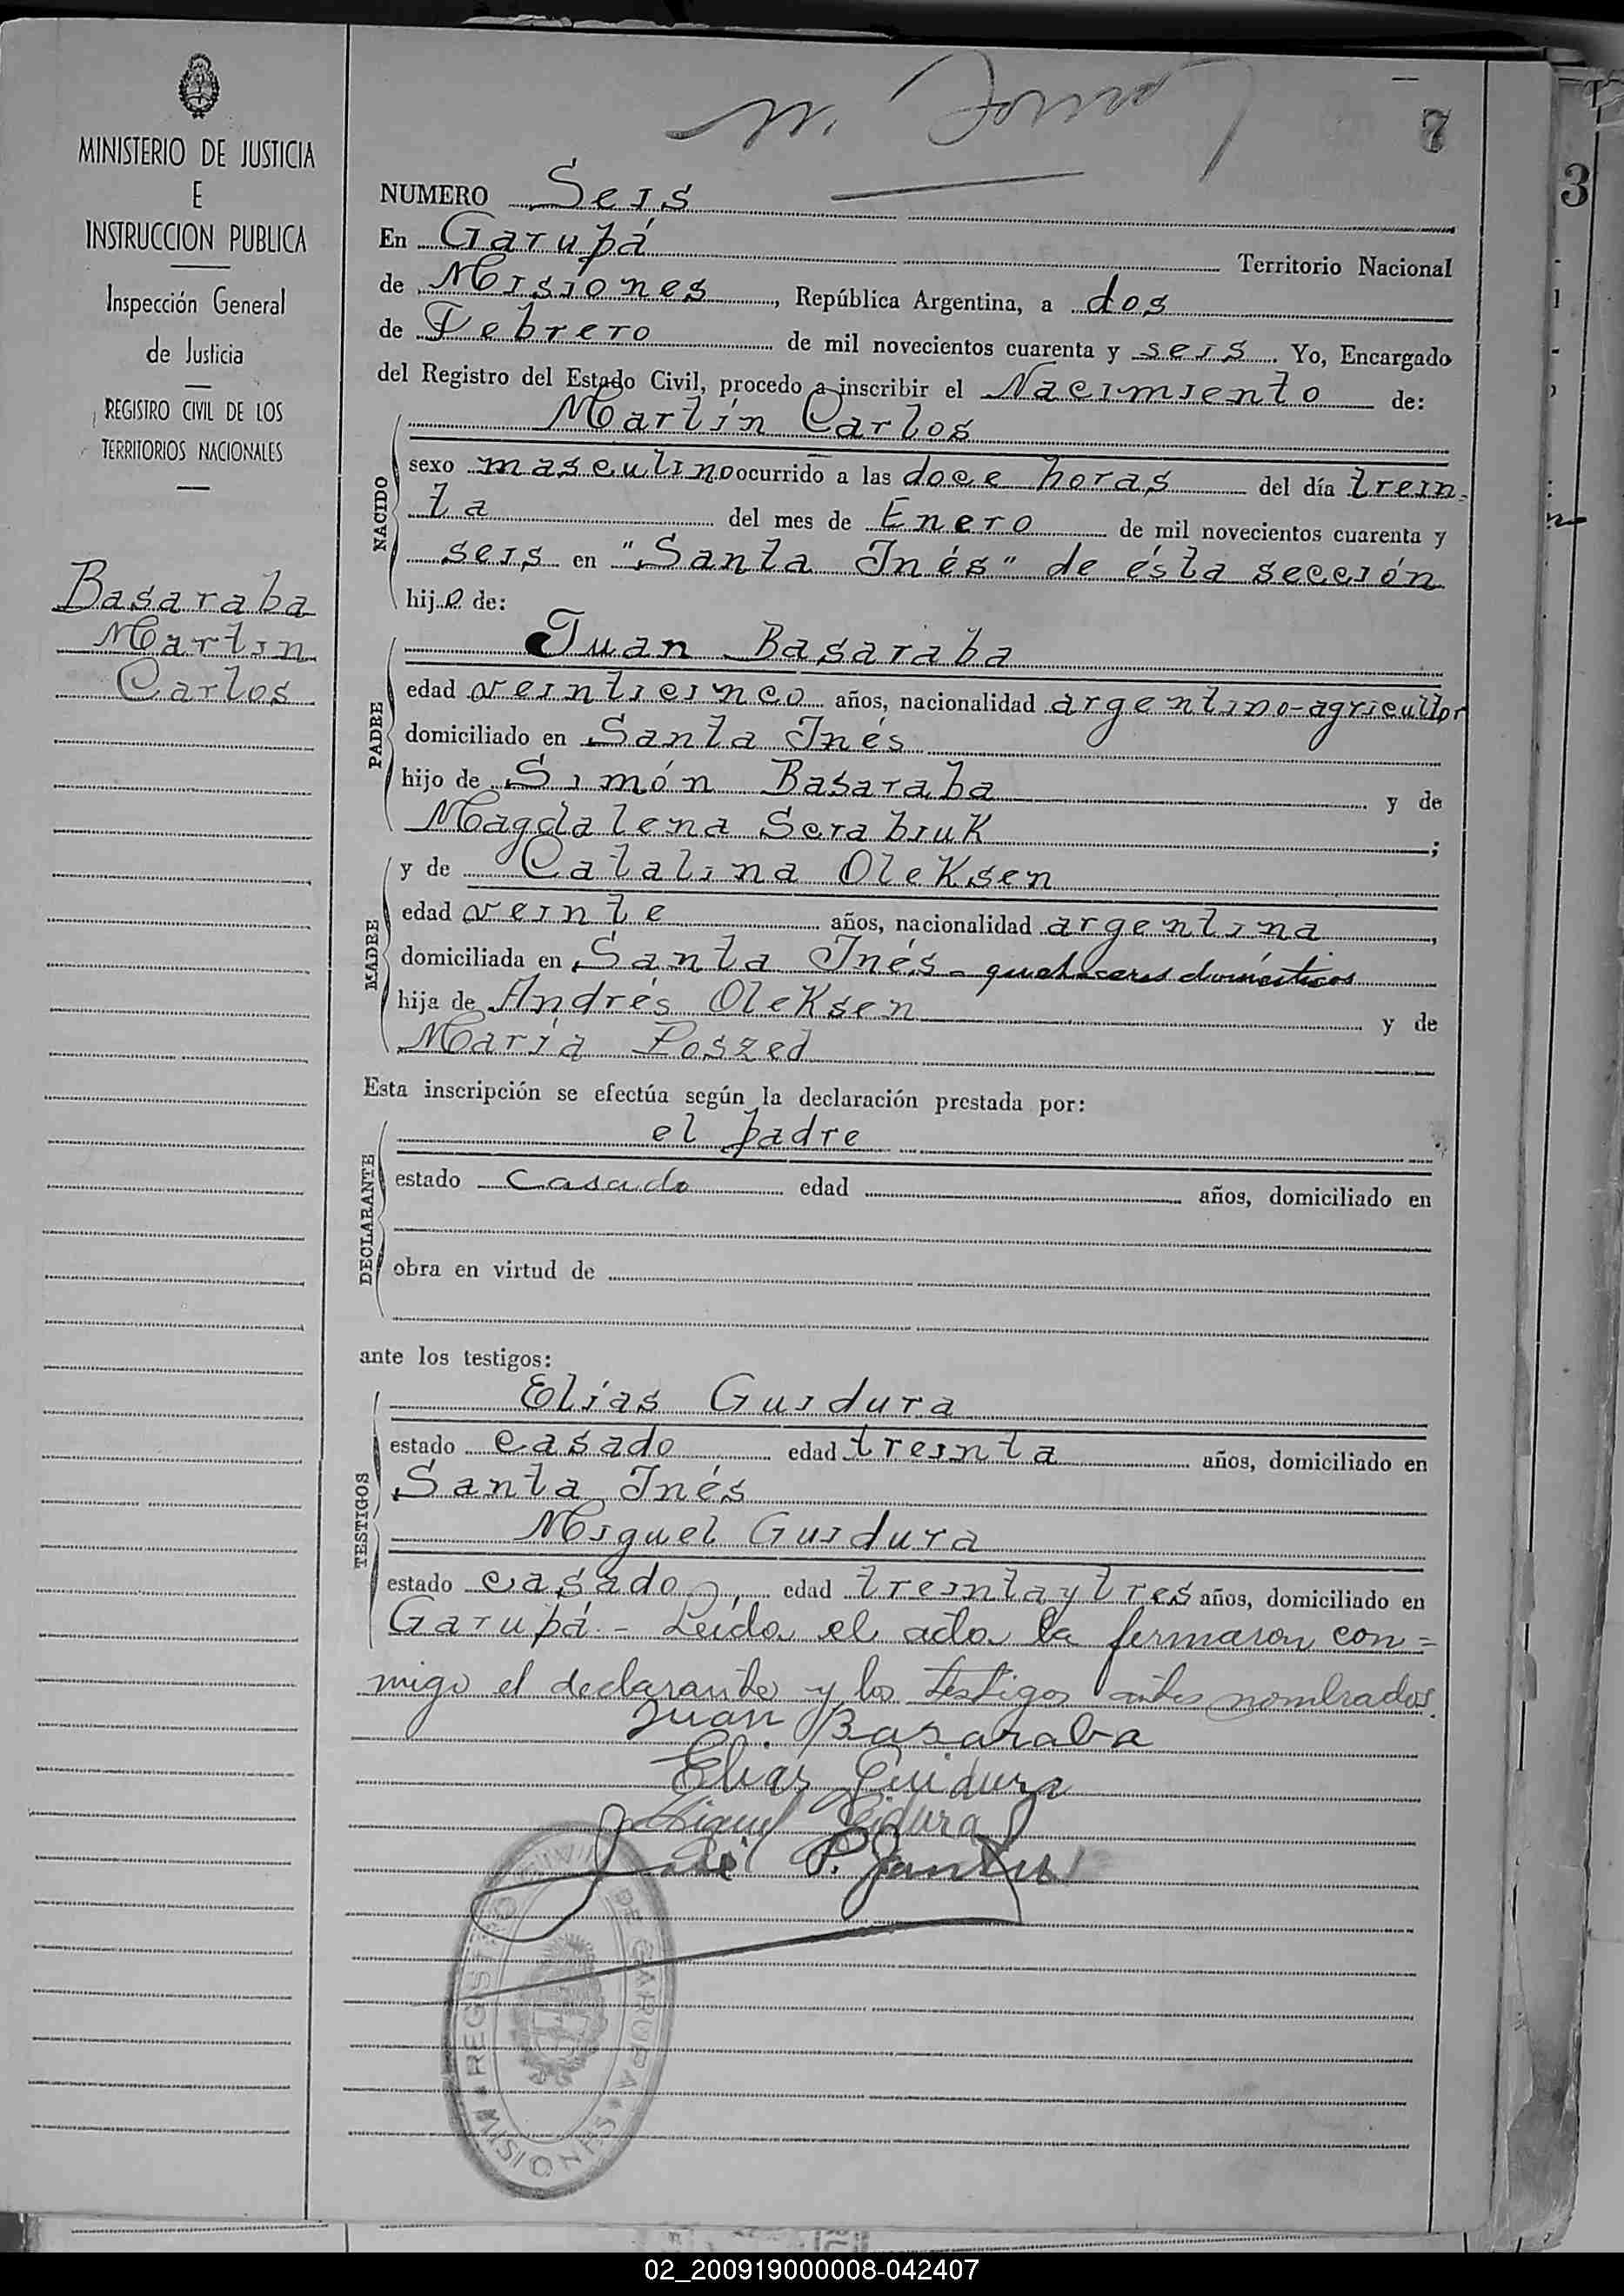 7
3
MINISTERIO DE JUSTICIA
E
INSTRUCCION PUBLICA
Inspección General
de Justicia
REGISTRO CIVIL DE LOS
TERRITORIOS NACIONALES
Basaraba
Martin
Carlos
NUMERO Seis
En Garupá Territorio Nacional
de Misiones, República Argentina, a dos
de Febrero de mil novecientos cuarenta y seis. Yo, Encargado
del Registro del Estado Civil, procedo a inscribir el Nacimiento de:
Martín Carlos
NACIDO
sexo masculino ocurrido a las doce horas del día trein-
ta del mes de Enero de mil novecientos cuarenta y
seis en "Santa Inés" de ésta sección
hijo de:
Juan Basaraba
PADRE
edad veinticinco años, nacionalidad argentino-agricultor
domiciliado en Santa Inés
hijo de Simón Basaraba y de
Magdalena Serabiuk;
y de Catalina Oleksen
MADRE
edad veinte años, nacionalidad argentina,
domiciliada en Santa Inés - quehaceres domésticos
hija de Andrés Oleksen y de
María Poszed
Esta inscripción se efectúa según la declaración prestada por:
el padre
DECLARANTE
estado Casado edad años, domiciliado en
obra en virtud de
ante los testigos:
Elías Guidura
TESTIGOS
estado casado edad treinta años, domiciliado en
Santa Inés
Miguel Guidura
estado casado, edad treinta y tres años, domiciliado en
Garupá - Leída el acta la firmaron con=
migo el declarante y los testigos antes nombrados.
Juan Basaraba
Elias Guidura
Miguel Gidura
José P.
REGISTRO CIVIL DE GARUPA
MISIONES
02_200919000008-042407